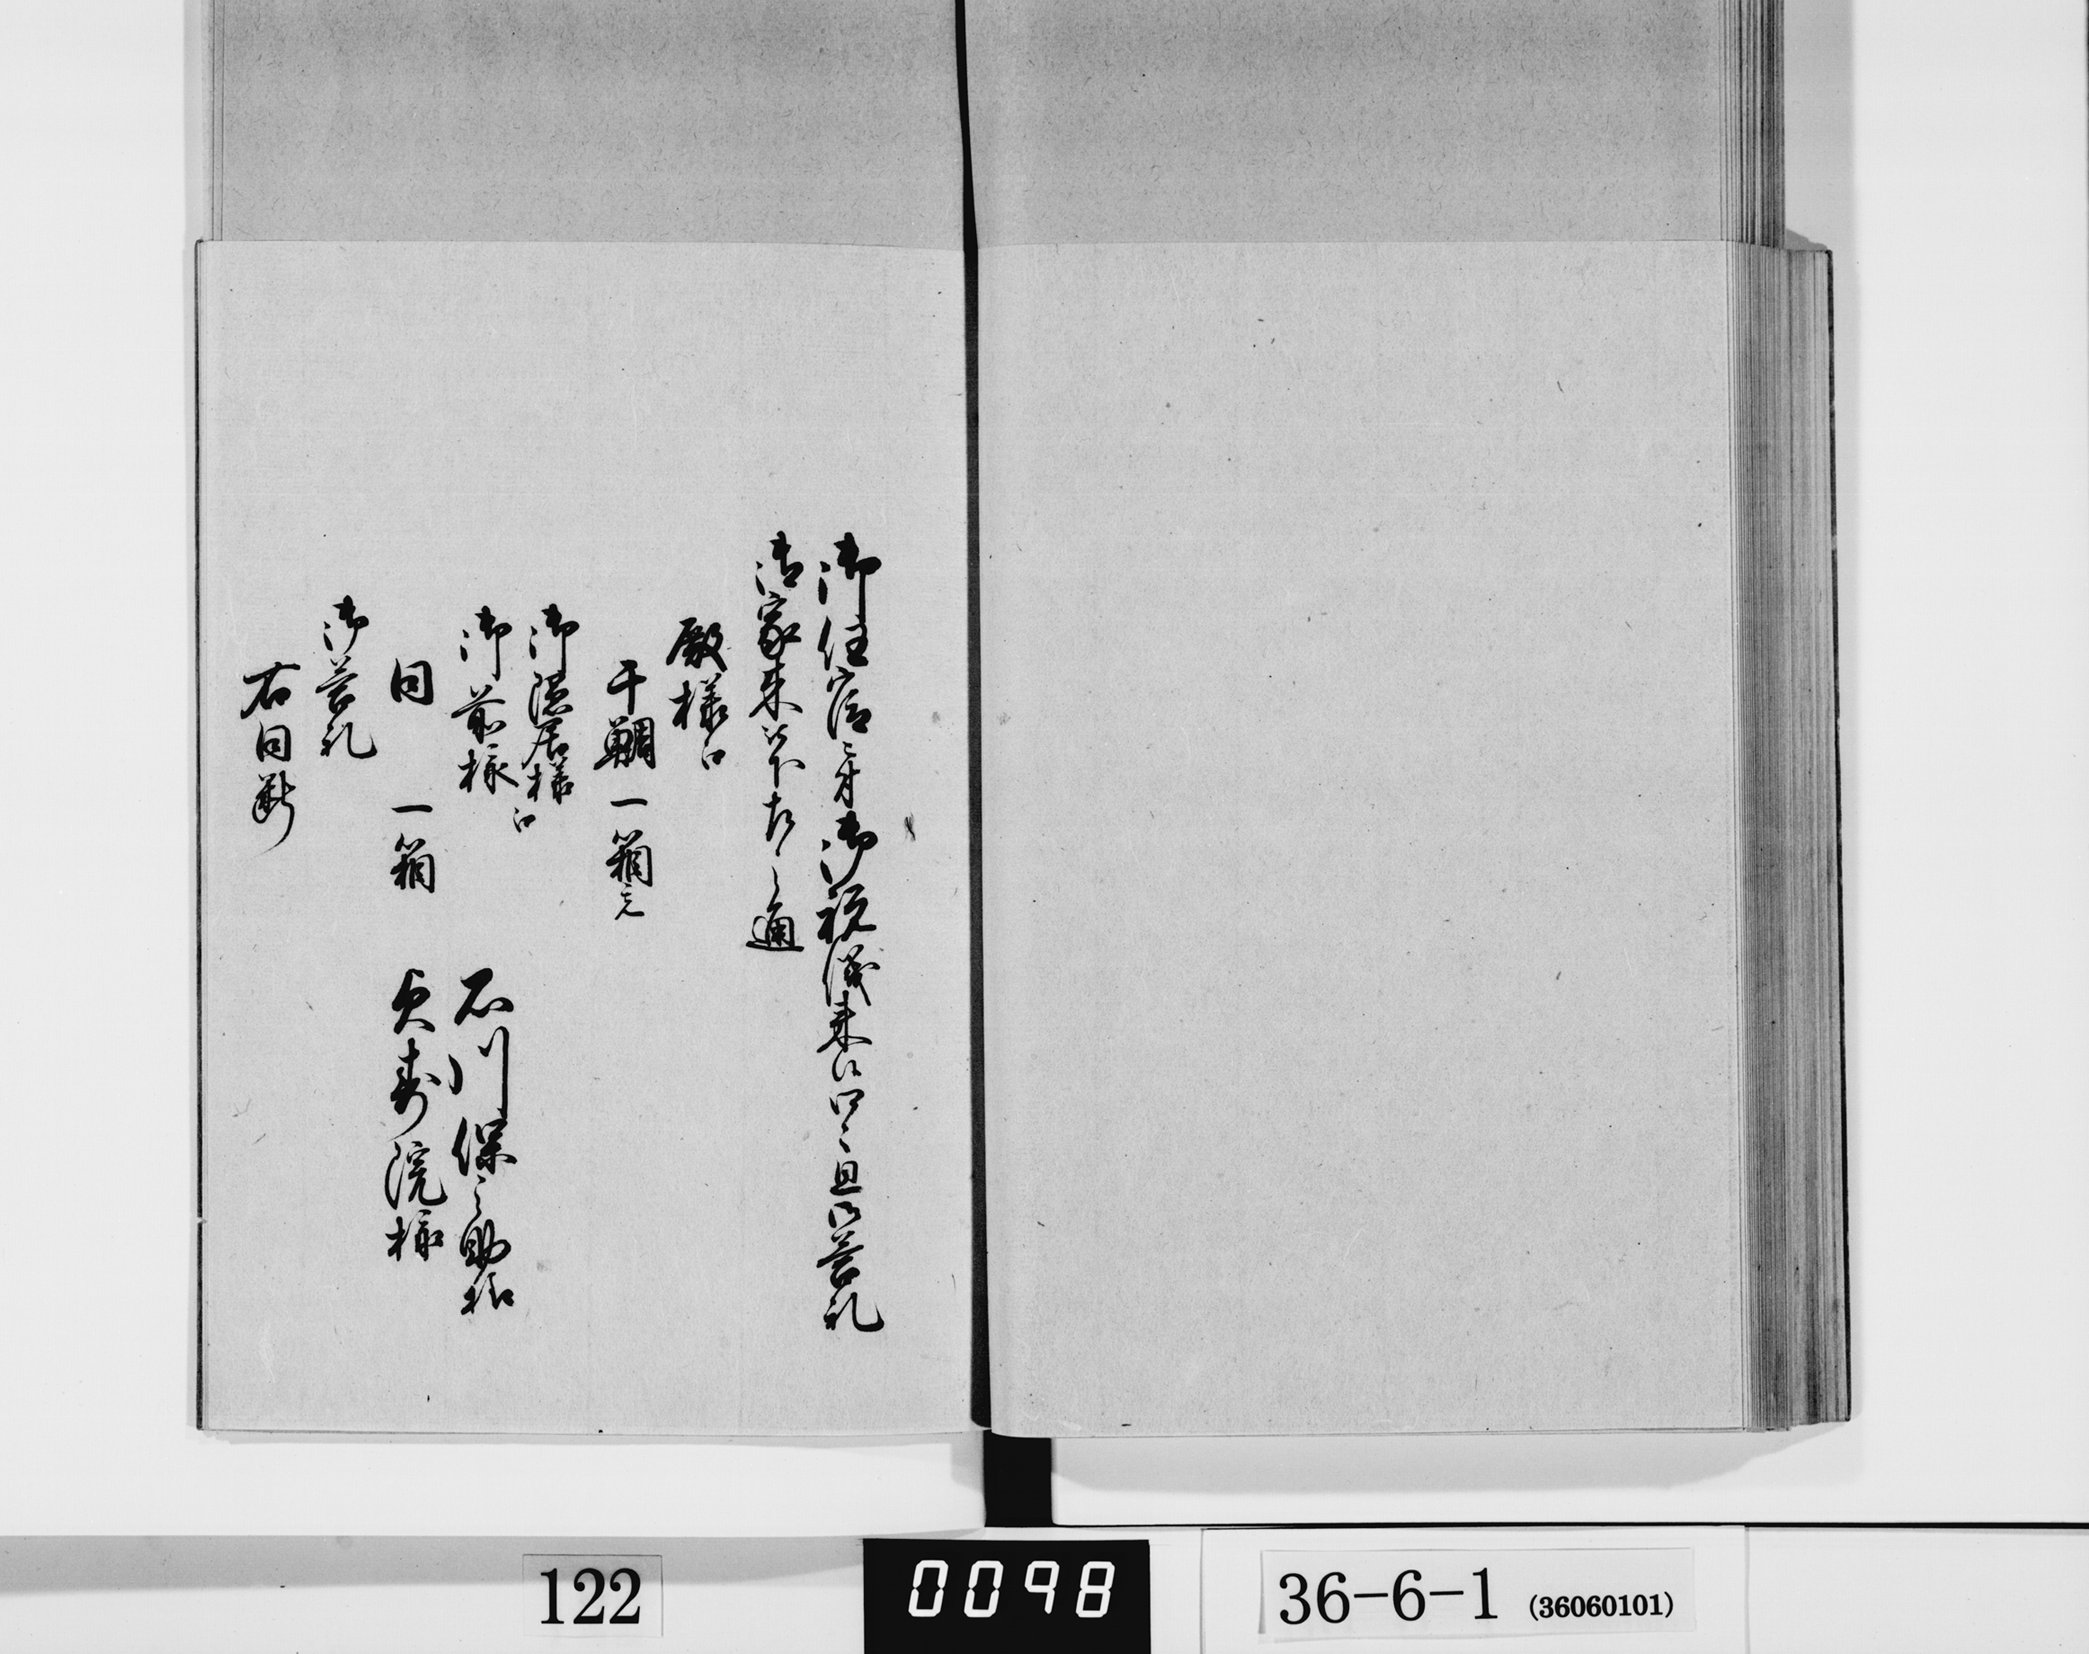 御任官ニ付御祝儀来候口々且御答礼
御家来以下左之通
殿様江
干鯛一箱宛
御隠居様江
御前様
石川保之助様
同 一箱
貞寿院様
御答礼
右同断
122
0098
36-6-1 (36060101)